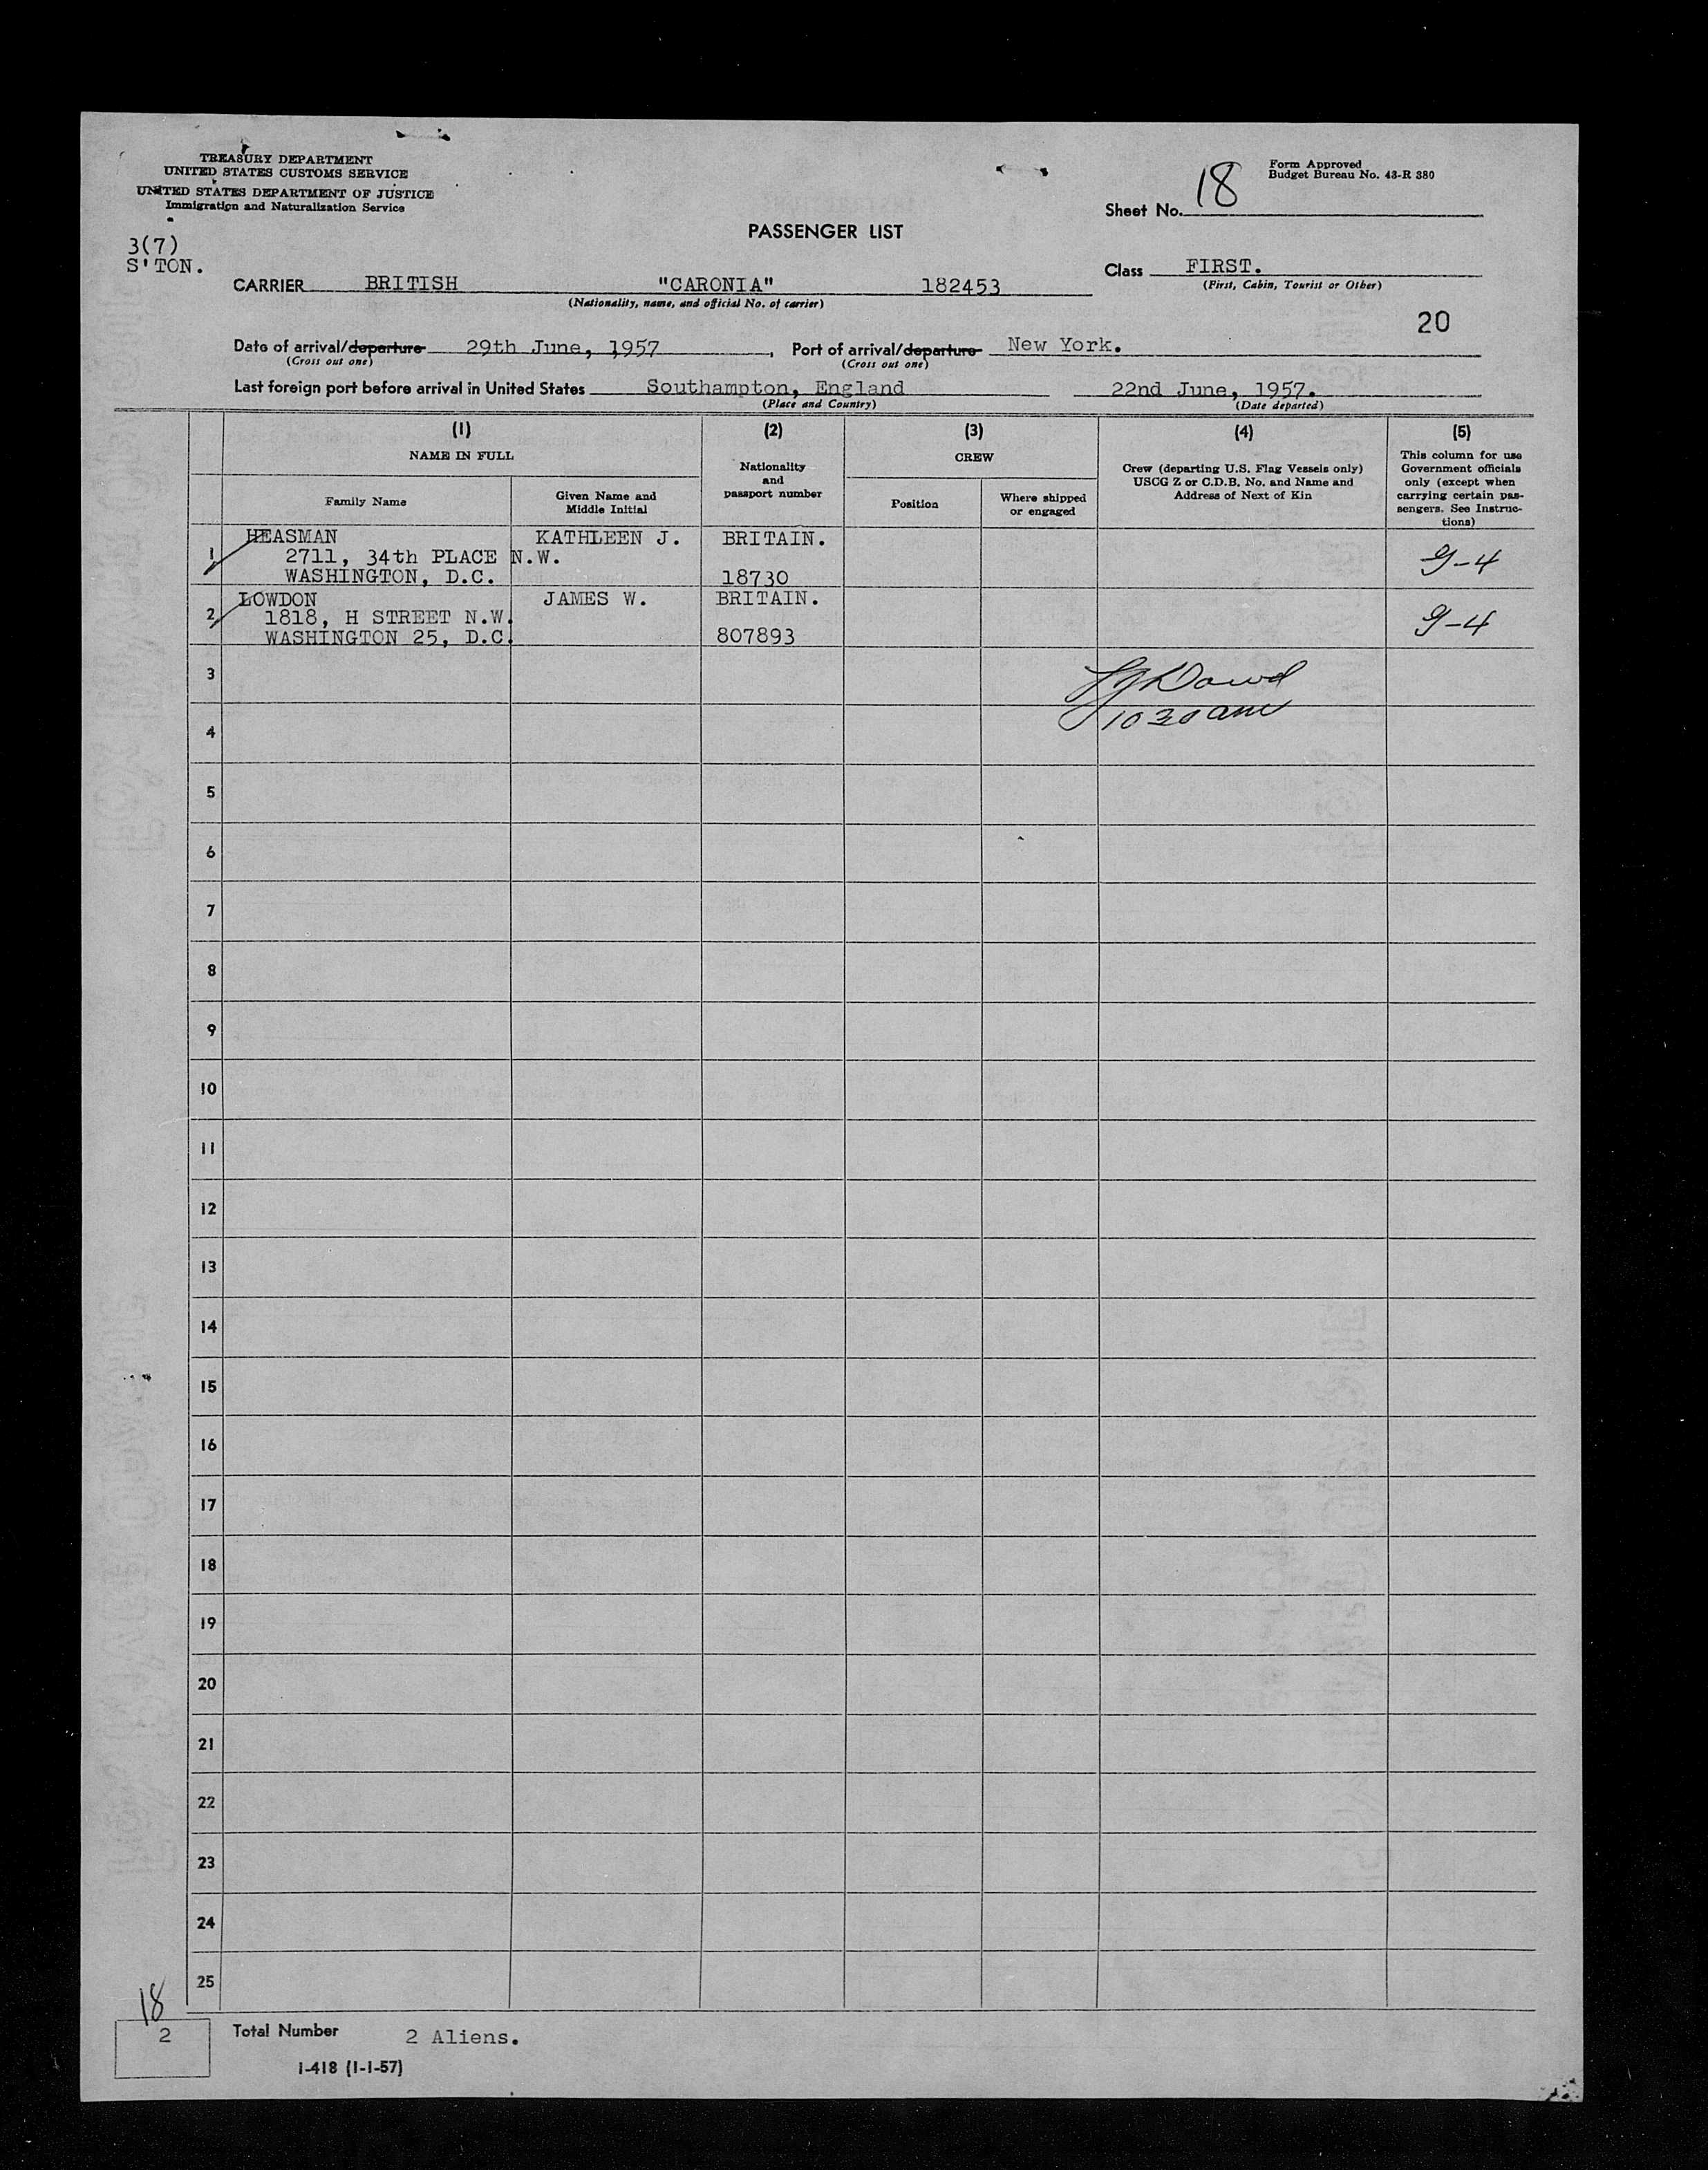 TREASURY DEPARTMENT
UNITED STATES CUSTOMS SERVICE
UNITED STATES DEPARTMENT OF JUSTICE
Immigration and Naturalization Service
Form Approved
Budget Bureau No. 43-R 380
Sheet No. 18
PASSENGER LIST
3(7)
S'TON.
CARRIER BRITISH "CARONIA" 182453
(Nationality, name, and official No. of carrier)
Class FIRST.
(First, Cabin, Tourist or Other)
20
Date of arrival/departure 29th June, 1957, Port of arrival/departure New York.
(Cross out one) (Cross out one)
Last foreign port before arrival in United States Southampton, England 22nd June, 1957.
(Place and Country) (Date departed)
(1) (2) (3) (4) (5)
NAME IN FULL
Family Name
Given Name and
Middle Initial
Nationality
and
passport number
CREW
Position
Where shipped
or engaged
Crew (departing U.S. Flag Vessels only)
USCG Z or C.D.B. No. and Name and
Address of Next of Kin
This column for use
Government officials
only (except when
carrying certain pas-
sengers. See Instruc-
tions)
1 HEASMAN KATHLEEN J. BRITAIN.
2711, 34th PLACE N.W. G-4
WASHINGTON, D.C. 18730
2 LOWDON JAMES W. BRITAIN.
1818, H STREET N.W. G-4
WASHINGTON 25, D.C. 807893
3
Dowd
4 10 30 am
5
6
7
8
9
10
11
12
13
14
15
16
17
18
19
20
21
22
23
24
25
18
2 Total Number 2 Aliens.
I-418 (1-1-57)